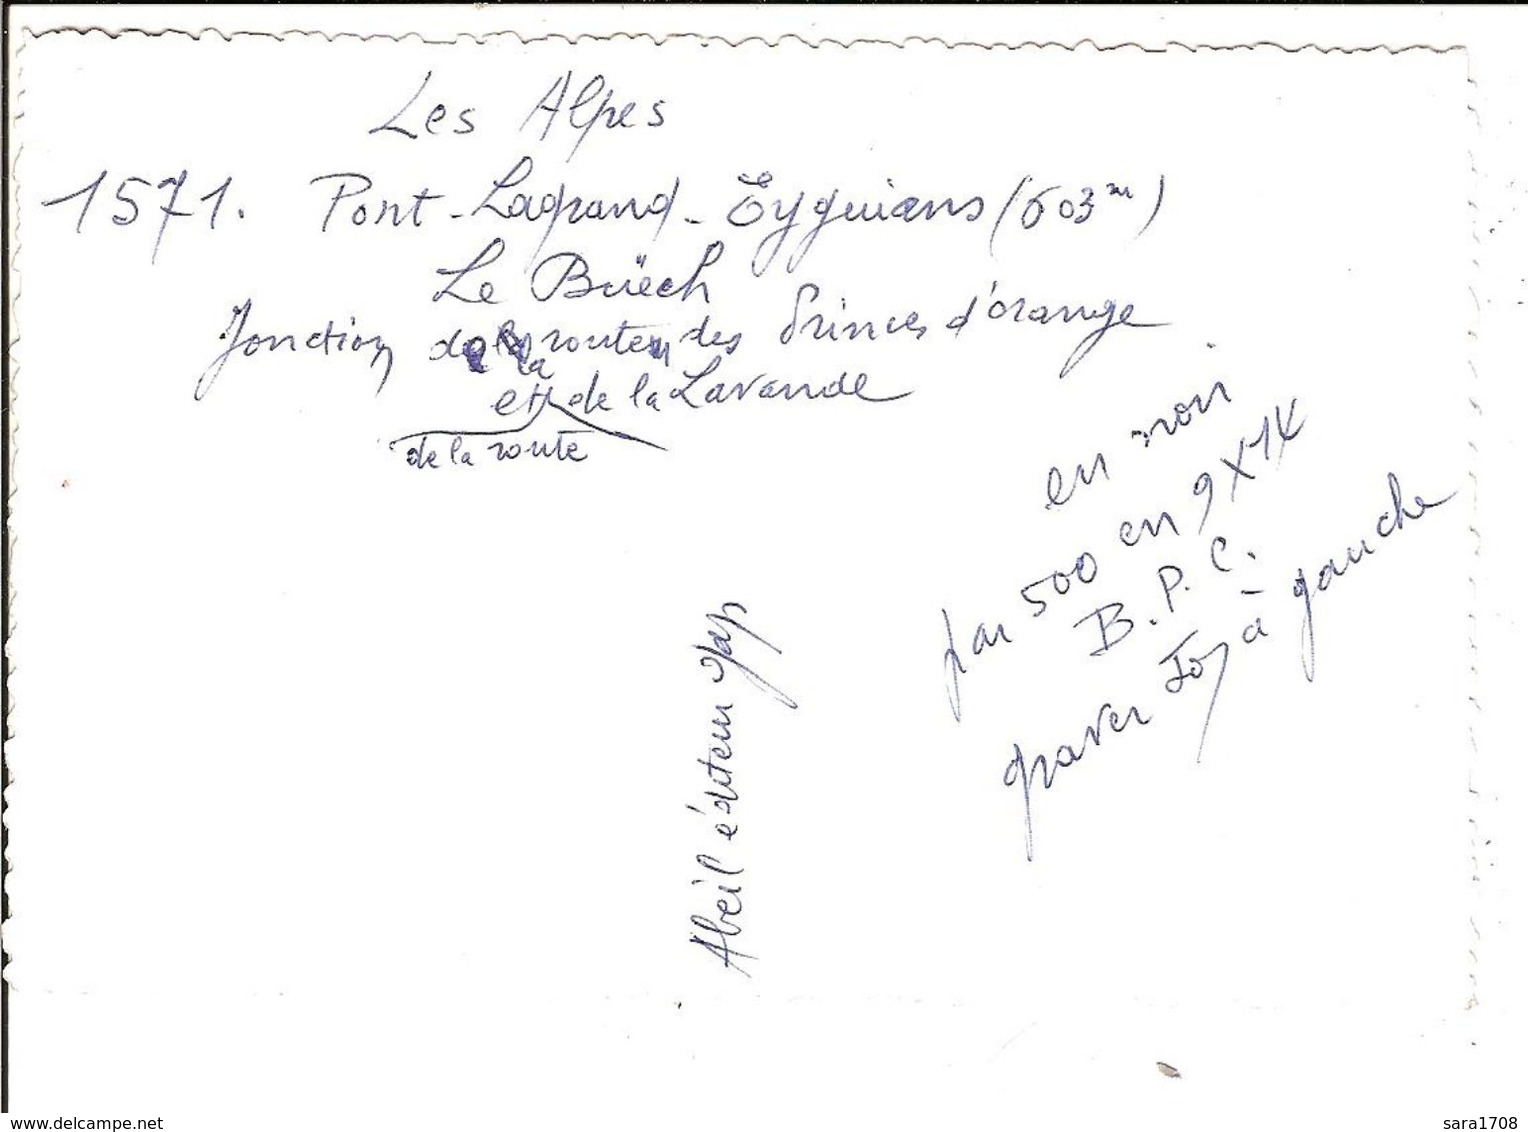 Les Alpes
1571. Pont-Lagrand-Eyguians (603m)
Le Buëch
Jonction de la route des Princes d'orange
et de la Lavande
de la route
en noir
par 500 en 9X14
B.P.C.
graver à gauche
Abeil éditeur Gap
www.delcampe.net
sara1708